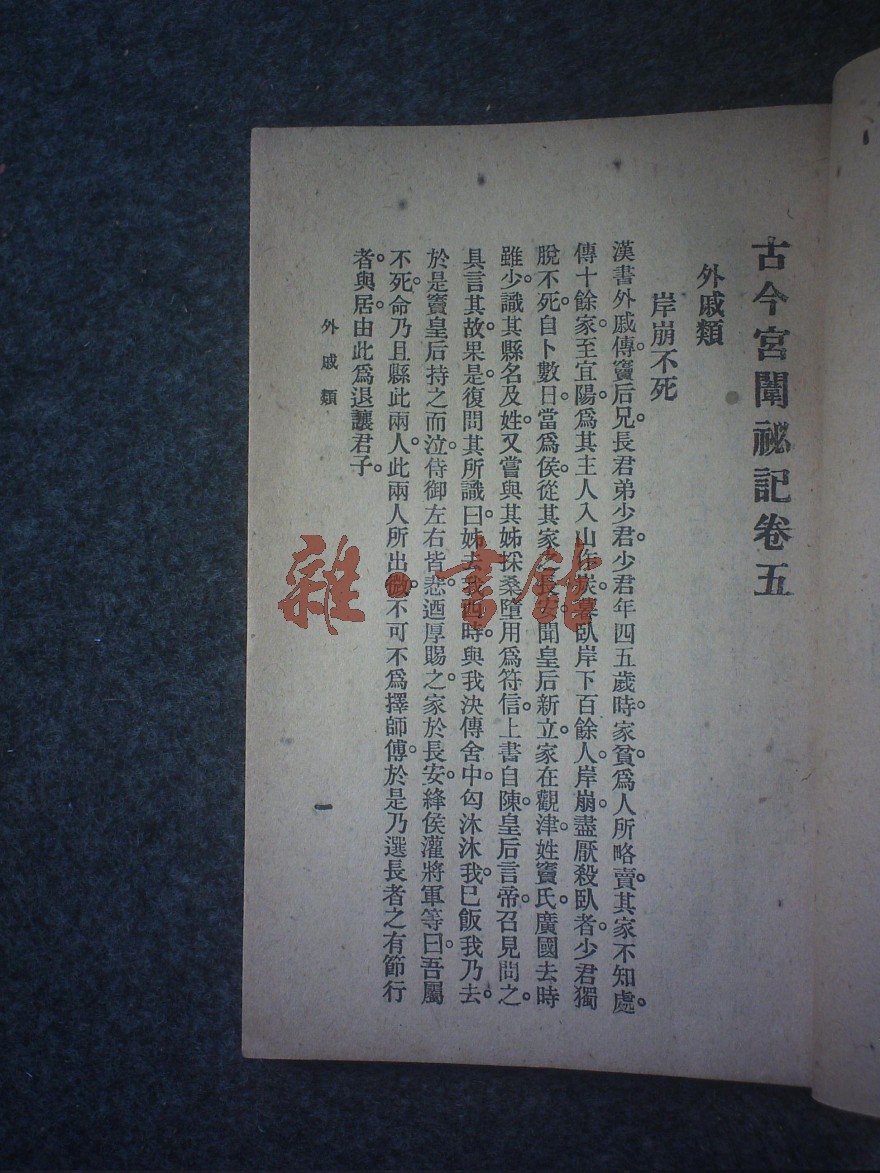 古今宮闈祕記卷五
外戚類
岸崩不死
漢書外戚傳。竇后兄長君。弟少君。少君年四五歲時。家貧。爲人所略賣。其家不知處。
傳十餘家。至宜陽。爲其主人入山作炭。暮臥岸下百餘人。岸崩。盡厭殺臥者。少君獨
脫不死。自卜。數日當爲侯。從其家之長安。聞皇后新立。家在觀津。姓竇氏。廣國去時
雖少。識其縣名及姓。又嘗與其姊採桑墮。用爲符信。上書自陳。皇后言帝。召見問之。
具言其故。果是。復問其所識。曰。姊去我西時。與我決傳舍中。匄沐沐我。已飯我。乃去。
於是竇皇后持之而泣。侍御左右皆悲。迺厚賜之。家於長安。絳侯灌將軍等曰。吾屬
不死。命乃且縣此兩人。此兩人所出微。不可不爲擇師傅。於是乃選長者之有節行
者。與居。由此爲退讓君子。
外戚類
一
雜·書館